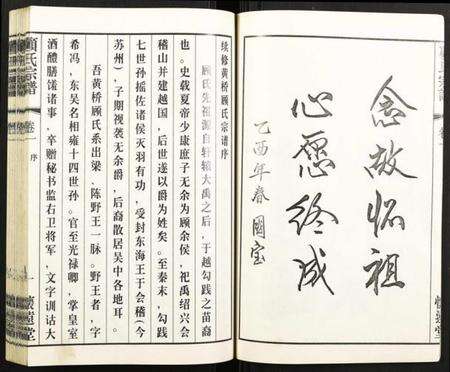 念故怀祖
心愿终成
乙酉年春 国宝
续修黄桥顾氏宗谱序
顾氏先祖源自轩辕大禹之后，于越勾践之苗裔
也。史载夏帝少康庶子无余为顾余侯，祀禹绍兴会
稽山并建越国，后世遂以爵为姓矣。至秦末，勾践
七世孙摇佐诸侯灭羽有功，受封东海王于会稽（今
苏州），子期视袭无余爵，后裔散居吴中各地耳。
吾黄桥顾氏系出梁，陈野王一脉。野王者，字
希冯，东吴名相雍十四世孙。官至光禄卿，掌皇室
酒醴膳馐诸事，卒赠秘书监右卫将军，文字训诂大
顾氏宗谱
卷一
序
一